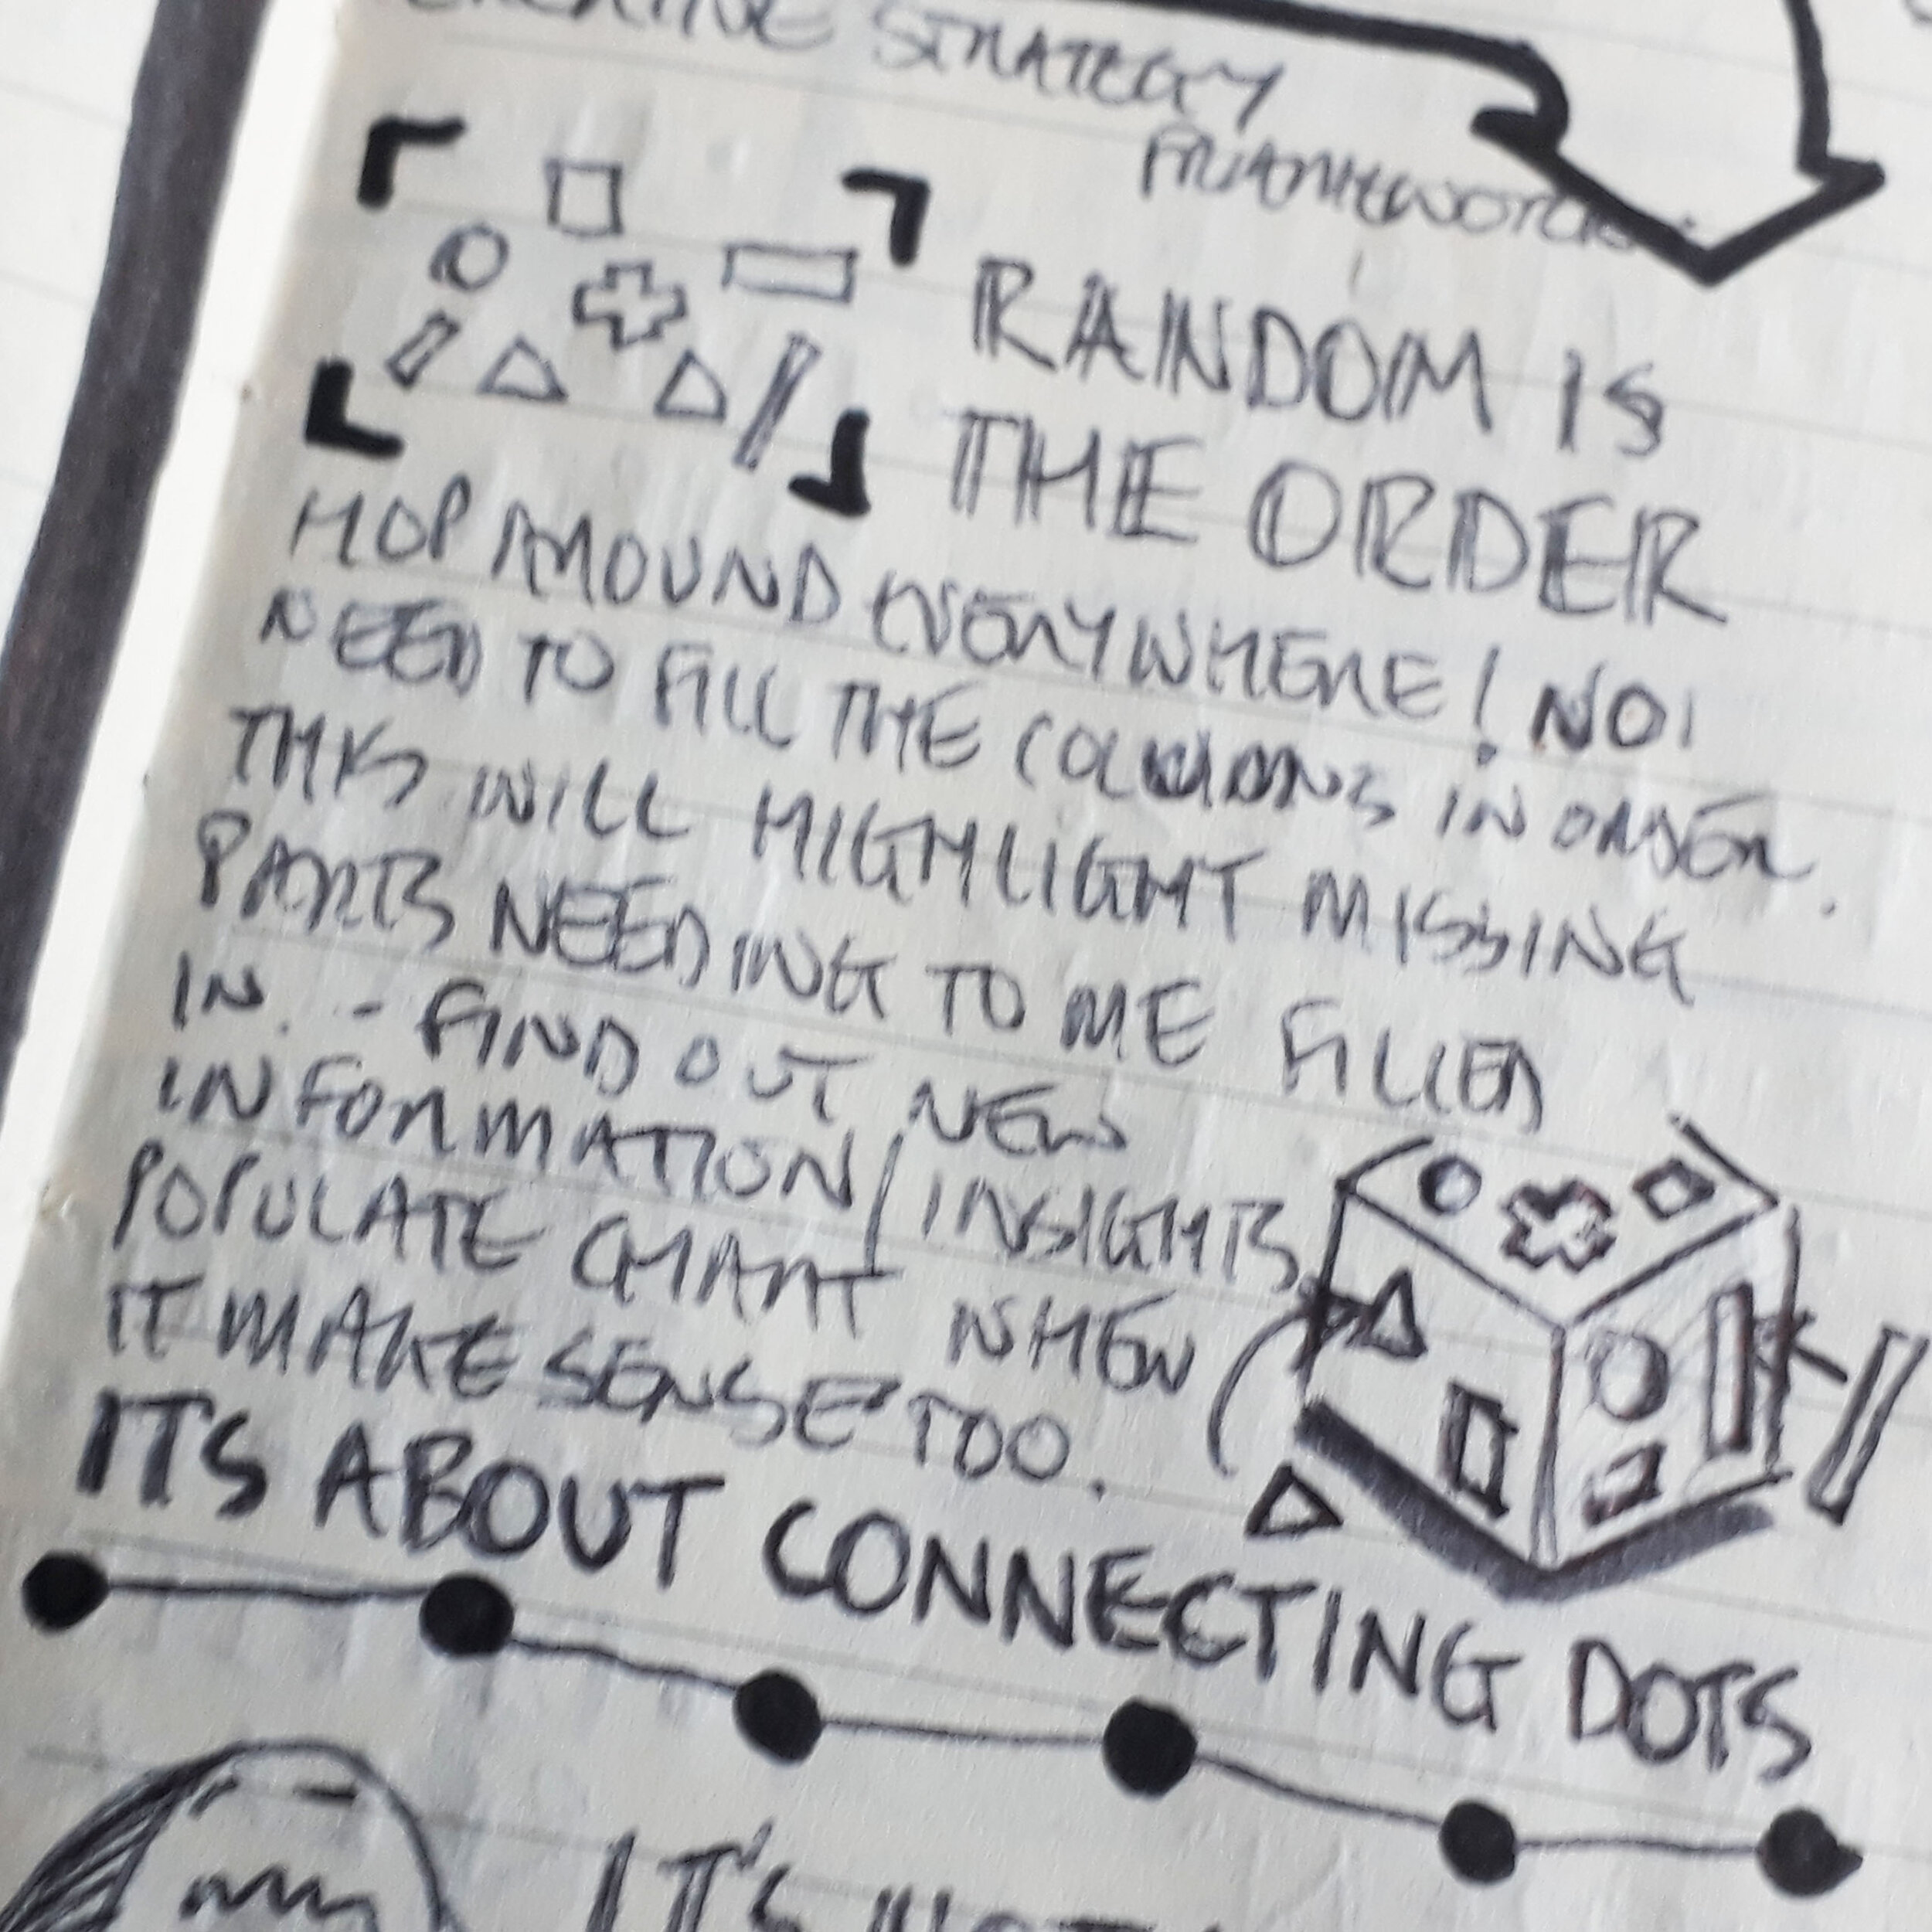 CREATIVE STRATEGY
FRAMEWORK
RANDOM IS
THE ORDER
HOP AROUND EVERYWHERE! NO!
NEED TO FILL THE COLUMNS IN ORDER.
THIS WILL HIGHLIGHT MISSING
PARTS NEEDING TO ME FILLED
IN. - FIND OUT NEW
INFORMATION / INSIGHTS
POPULATE CHART WHEN
IT MAKE SENSE TOO.
ITS ABOUT CONNECTING DOTS
IT'S NOT